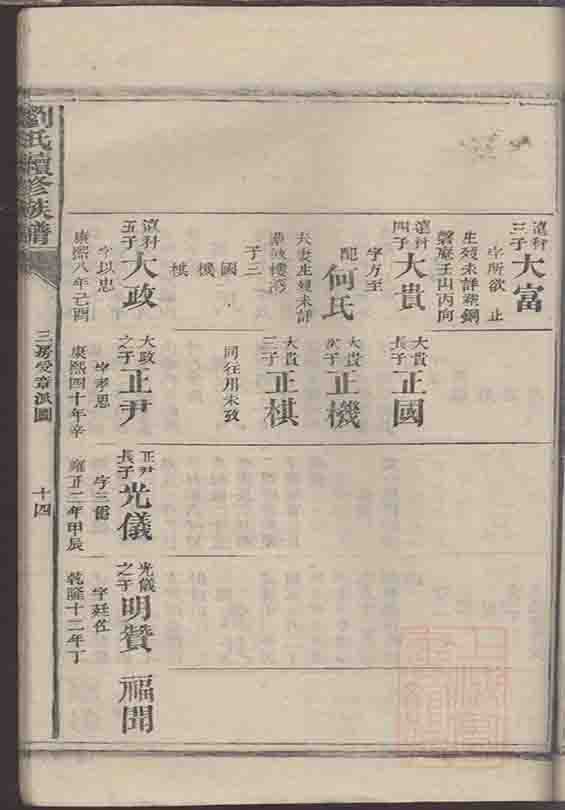 遠科三子大富
字所欲 止
生歿未詳葬銅
磐庵壬山丙向
遠科四子大貴
字方至
配何氏
夫妻生歿未詳
子三
國
機
棋
遠科五子大政
字以忠
康熙八年己酉
大貴長子正國
大貴次子正機
大貴三子正棋
同往用未攷
大政之子正尹
字孝思
康熙四十年辛
正尹長子光儀
字三錫
雍正二年甲辰
光儀之子明贊 福聞
字廷佐
乾隆十二年丁
劉氏續修族譜
三房受章派圖
十四